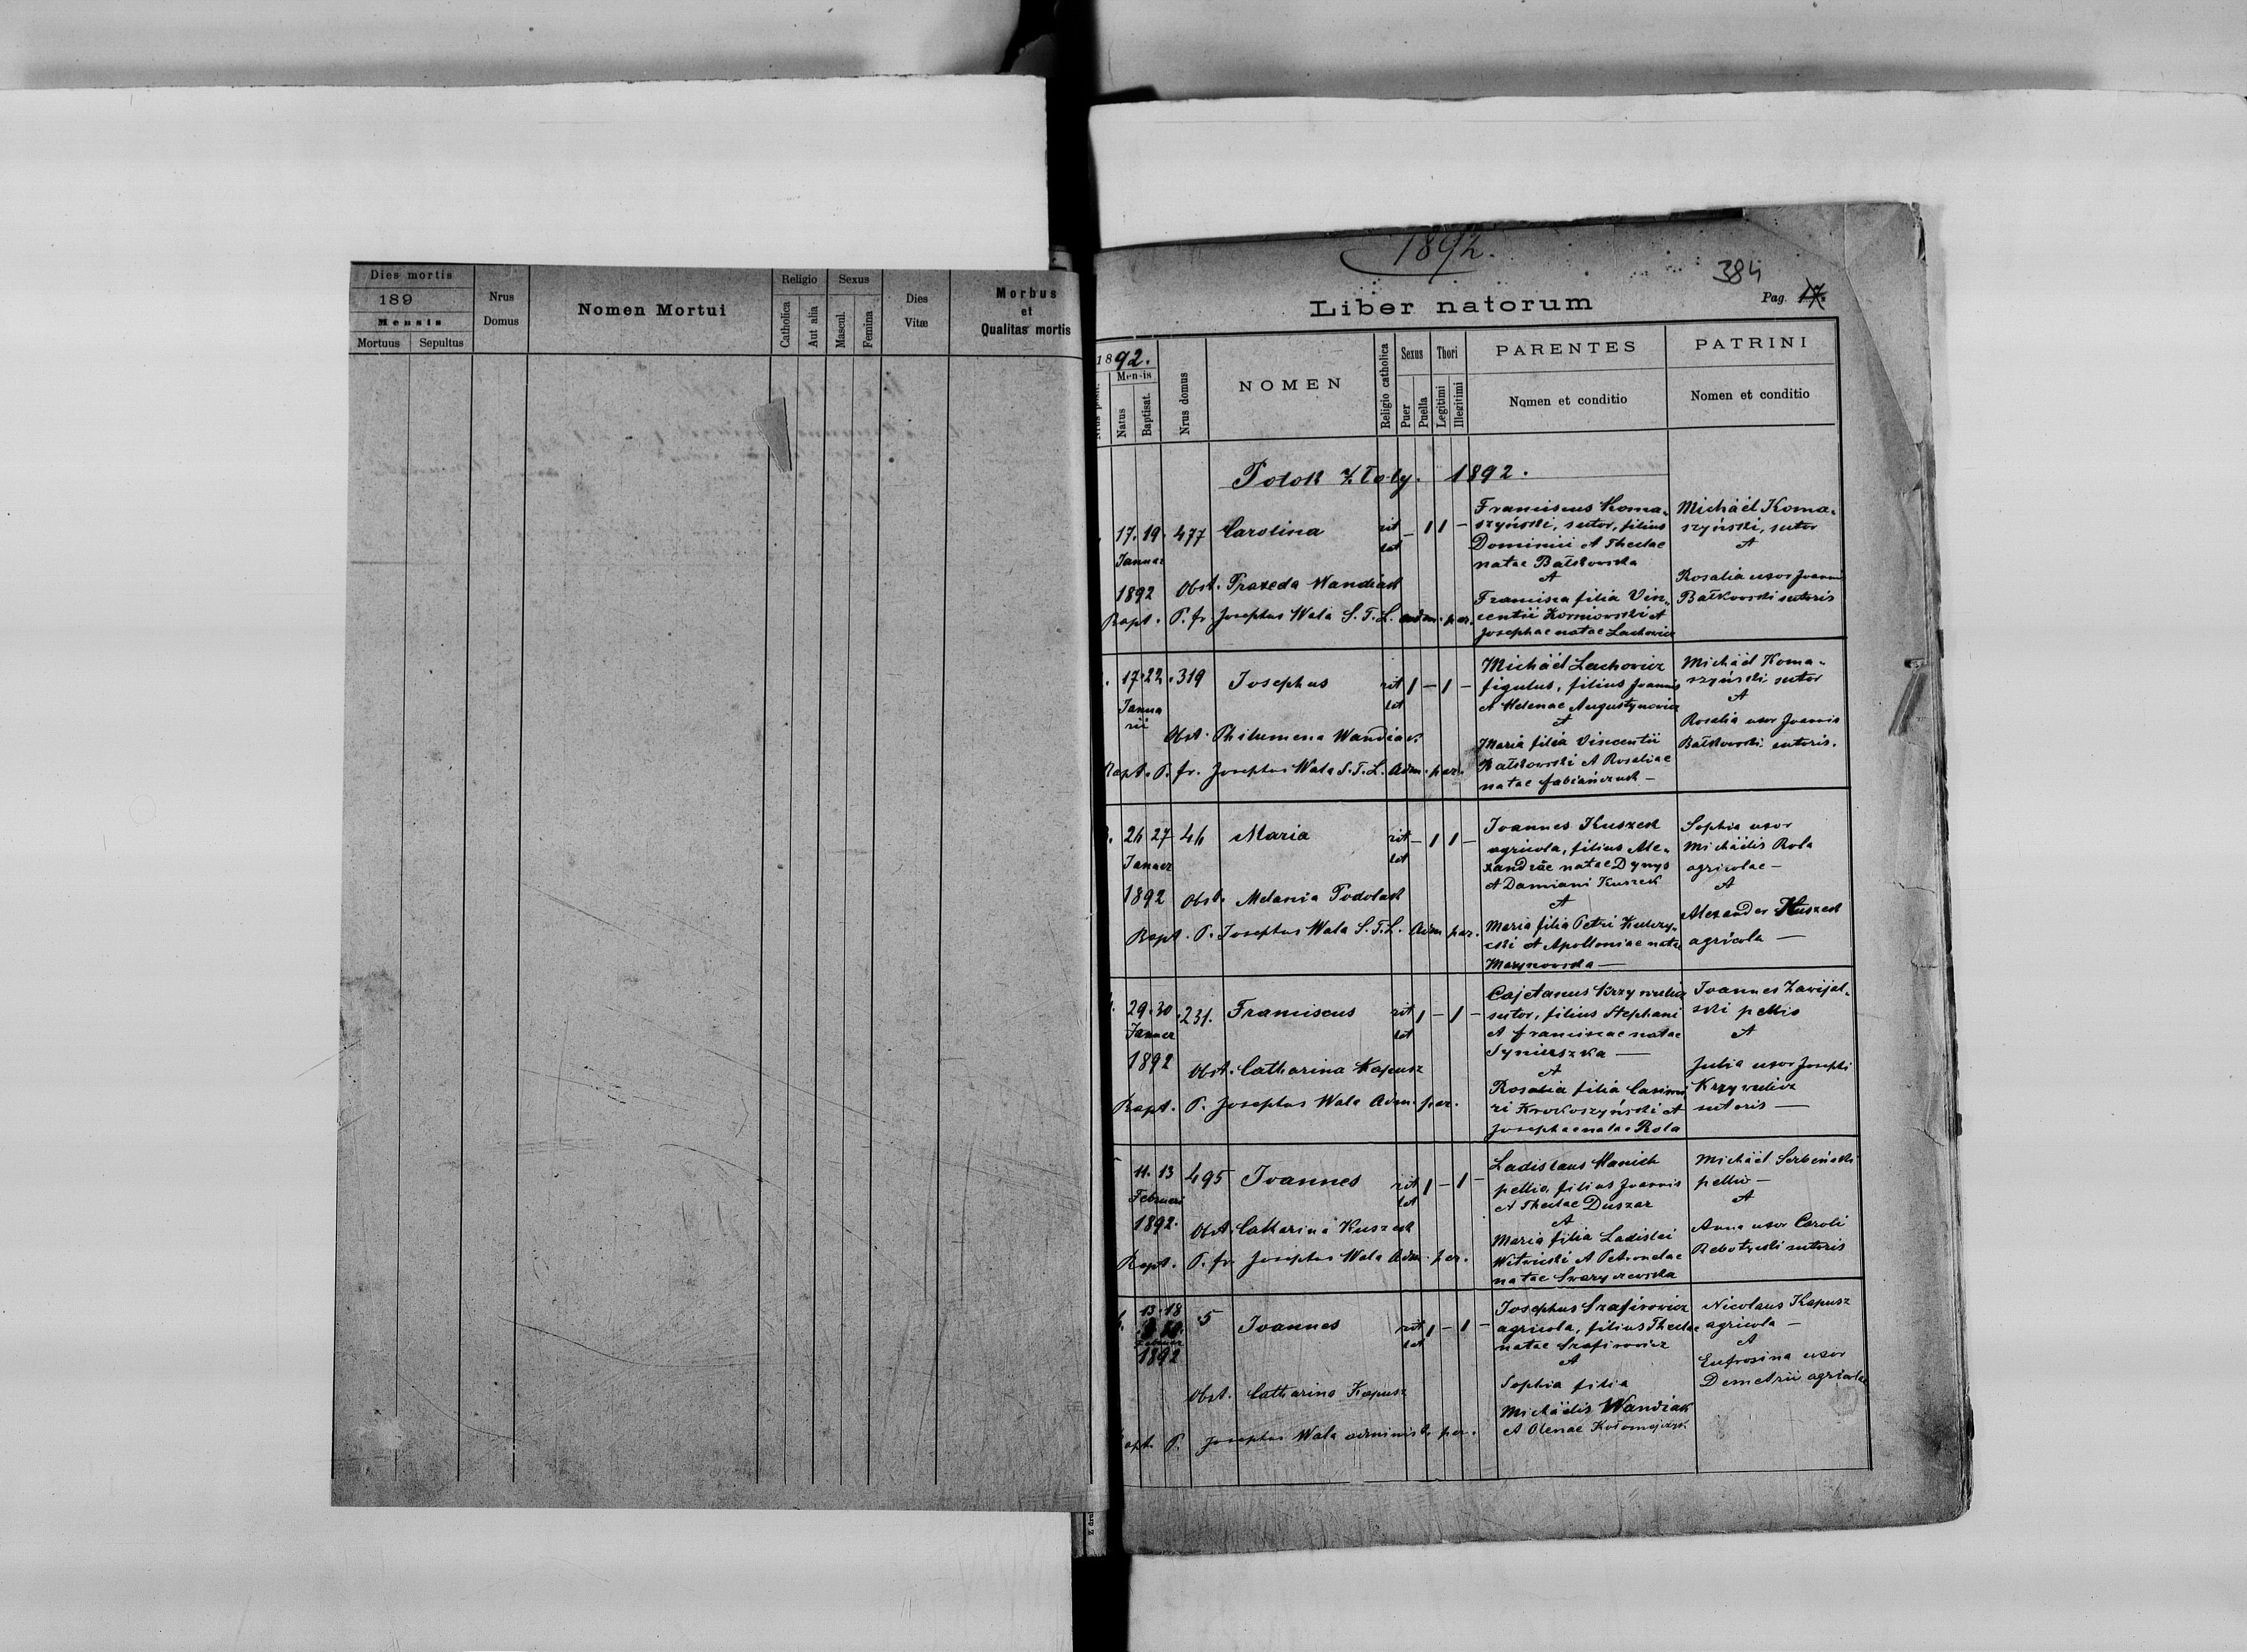 Dies mortis
189
Mensis
Mortuus
Sepultus
Nrus
Domus
Nomen Mortui
Religio
Catholica
Aut alia
Sexus
Mascul.
Femina
Dies
Vitæ
Morbus
et
Qualitas mortis
1892.
384
Liber natorum
Pag. 17.
1892.
Mensis
Natus
Baptisat.
Nrus domus
NOMEN
Religio catholica
Sexus
Puer
Puella
Thori
Legitimi
Illegitimi
PARENTES
Nomen et conditio
PATRINI
Nomen et conditio
Potok Złoty. 1892.
17. 19. 477 Carolina rit lat – 1 1 –
Januar
1892 Obst. Praxeda Wandiak
Bapt. P. fr. Josephus Wala S. T. L. adm. par.
Franciscus Koma-
szyński, sutor, filius
Dominici et Theclae
natae Bałkowska
et
Francisca filia Vin-
centii Korniowski et
Josephae natae Lachowicz
Michäel Koma-
szyński, sutor
et
Rosalia uxor Joannis
Bałkowski sutoris
17. 22. 319 Josephus rit lat 1 – 1 –
Janua
rii
Obst. Philumena Wandiak
Bapt. P. fr. Josephus Wala S. T. L. Adm. par.
Michäel Lachowicz
figulus, filius Joannis
et Helenae Augustynowicz
et
Maria filia Vincentii
Bałkowski et Rosaliae
natae Fabiańczuk –
Michäel Koma-
szyński sutor
et
Rosalia uxor Joannis
Bałkowski sutoris.
26 27 46 Maria rit lat – 1 1 –
Januar
1892 Obst. Melania Podolak
Bapt. P. Josephus Wala S. T. L. Adm. par.
Joannes Kuszek
agricola, filius Ale-
xandrae natae Dynys
et Damiani Kuszek
et
Maria filia Petri Kulczy-
cki et Apolloniae natae
Mazynowska –
Sophia uxor
Michäelis Rola
agricolae –
et
Alexander Kuszek
agricola –
29. 30 231. Franciscus rit lat 1 – 1 –
Januar
1892 Obst. Catharina Kapusz
Bapt. P. Josephus Wala Adm. par.
Cajetanus Krzywulicz
sutor, filius Stephani
et Franciscae natae
Syniaszka –
et
Rosalia filia Casimi
ri Krokoszyński et
Josephae natae Rola
Joannes Zawijal-
ski pellio
et
Julia uxor Josephi
Krzywulicz
sutoris –
11. 13 495 Joannes rit lat 1 – 1 –
Februar
1892. Obst. Catharina Kuszek
Bapt. P. fr. Josephus Wala Adm. par.
Ladislaus Hanich
pellio, filius Joannis
et Theclae Duszar
et
Maria filia Ladislai
Witwicki et Petronelae
natae
Michäel Serbeński
pellio –
et
Anna uxor Caroli
sutoris
13. 18 5 Joannes rit lat 1 – 1 –
Februar
1892
Obst. Catharina Kapusz
Bapt. P. Josephus Wala administ. par.
Josephus Szafirowicz
agricola, filius Theclae
natae Szafirowicz
et
Sophia filia
Michäelis Wandiak
et Olenae Kołomejczyk
Nicolaus Kapusz
agricola –
et
Eufrosina uxor
Demetrii agricolae